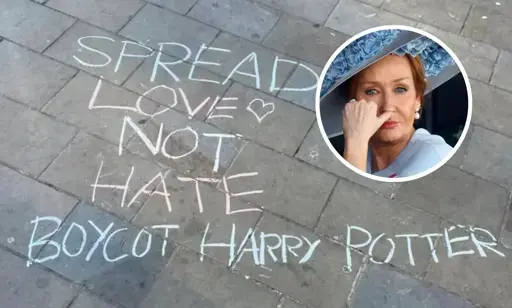 SPREAD
LOVE ♡
NOT
HATE
BOYCOT HARRY POTTER